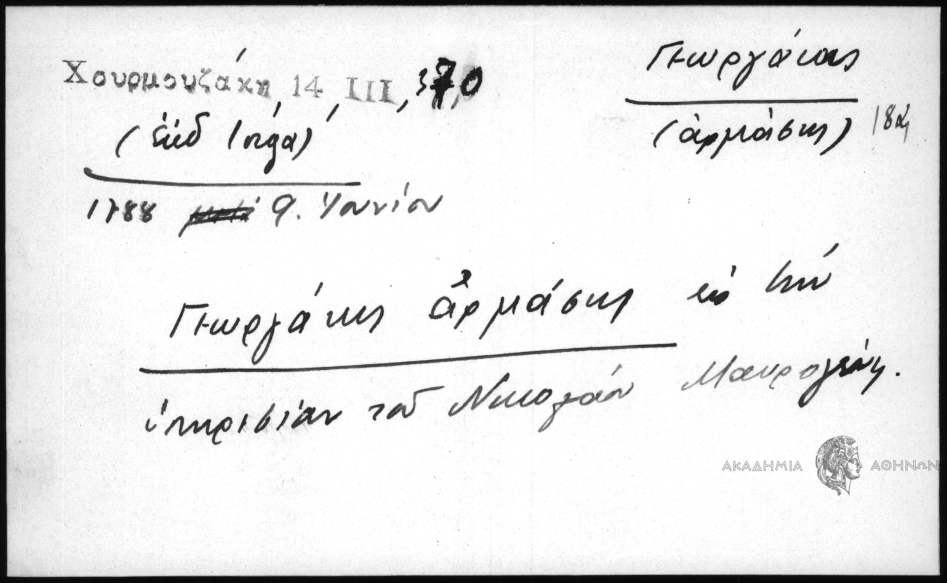 Χουρμουζάκη 14 III, 370
(ἐκδ Ἰόγα)
Γεωργάκης
(ἀρμάσης) 18ά
1788 9. Ἰουνίου
Γεωργάκης ἀρμάσης εἰς τὴν
ὑπηρεσίαν τοῦ Νικολάου Μαυρογένη.
ΑΚΑΔΗΜΙΑ ΑΘΗΝΩΝ